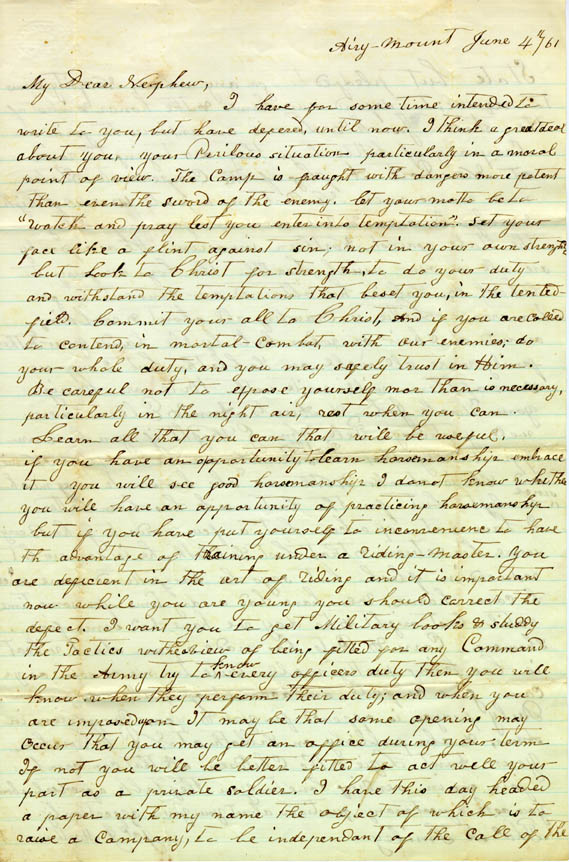 Airy-Mount June 4th/61
My Dear Nephew,
I have for some time intended to
write to you, but have defered, until now. I think a great deal
about you, your Perilous situation particularly in a moral
point of view. The Camp is fraught with dangers more potent
than even the sword of the enemy. let your motto be to
"watch and pray lest you enter into temptation". Set your
face like a flint against sin; not in your own strength
but Look to Christ for strength, to do your duty
and withstand the temptations that beset you, in the tented-
field. Commit your all to Christ, and if you are called
to contend, in mortal-Combat, with our enemies; do
your whole duty, and you may safely trust in Him.
Be careful not to expose yourself mor than is necessary,
particularly in the night air, rest when you can.
Learn all that you can that will be useful.
if you have an opportunity to learn horsemanship embrace
it you will see good horsemanship I do not know whether
you will have an opportunity of practicing horsemanship
but if you have put yourself to inconvenienc to have
th advantage of training under a riding-master. You
are deficient in the art of riding and it is important
now while you are young you should correct the
defect. I want you to get Military books & study
the Tactics with a view of being fitted for any Command
in the Army try to know every officers duty then you will
know when they perform their duty; and when you
are imposed upon It may be that some opening may
occur that you may get an office during your term
If not you will be better fitted to act well your
part as a private soldier. I have this day headed
a paper with my name the object of which is to
raise a Company, to be independant of the call of the